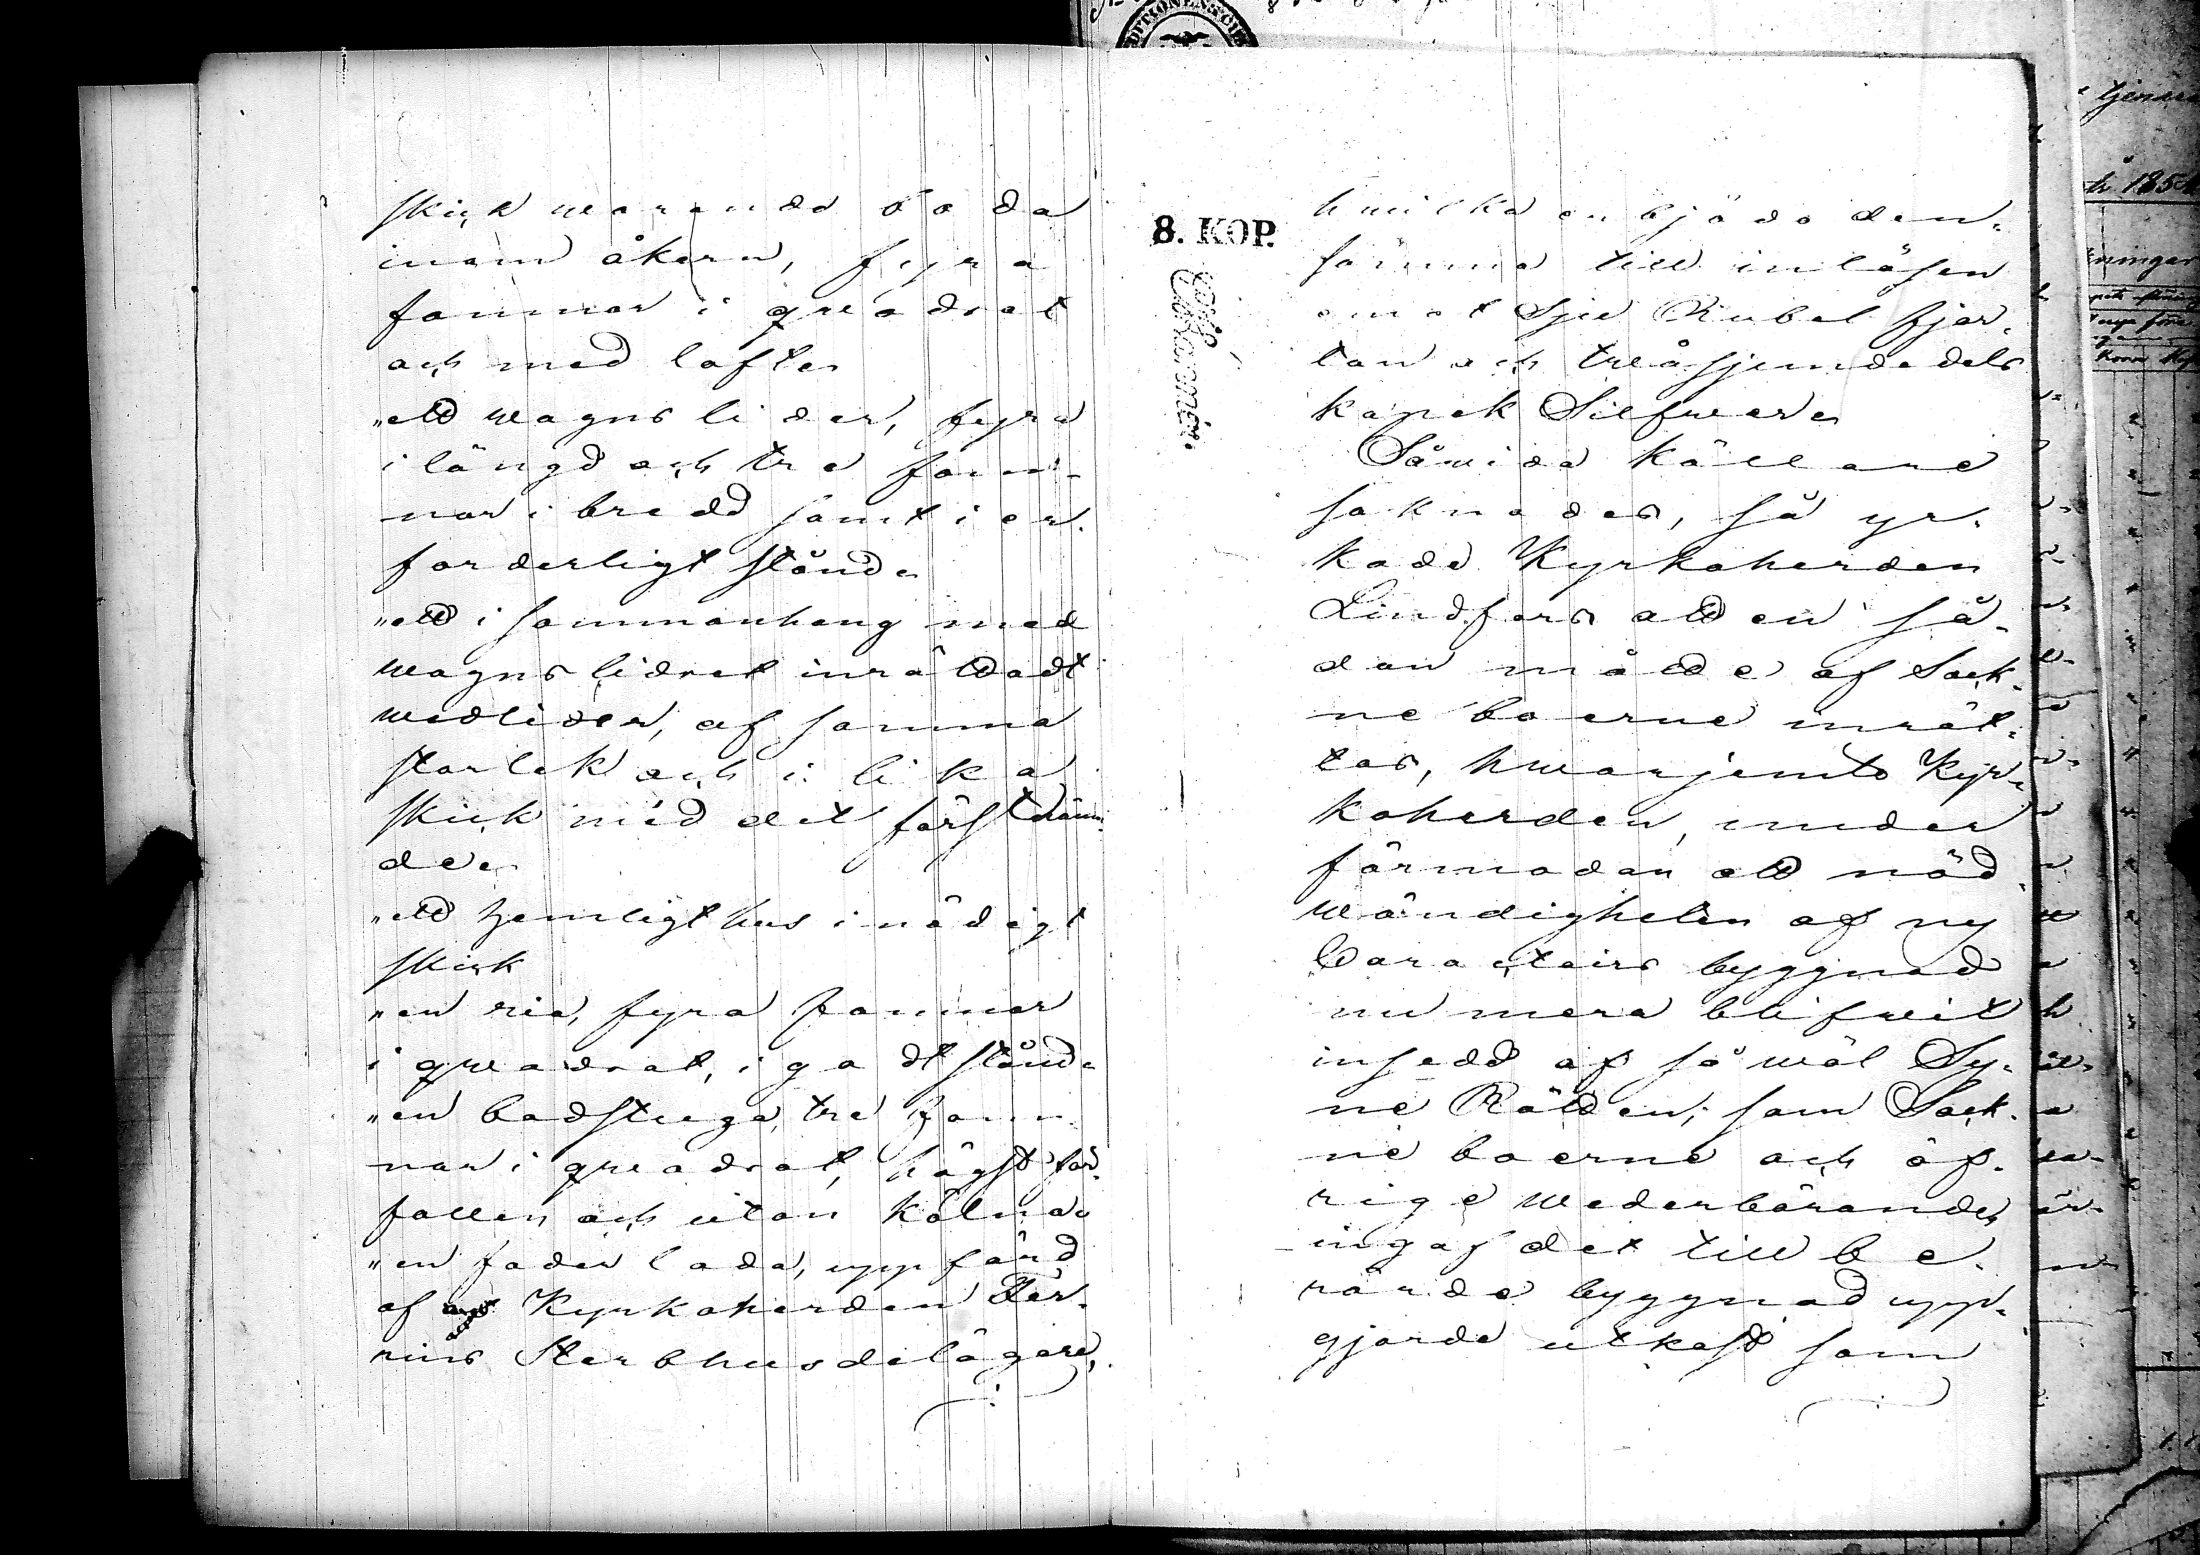 skick warande boda
inom åkern, fyra
famnar i qwadrat
och med lofte.
"ett wagns lider, fyra
i längd och tre fam-
nar i bredd samt i er-
forderligt stånd.
"ett i sammanhang med
wagns lidret inrättadt
wedlider, af samma
storlek och i lika
skick med det förstnäm-
de.
"ett hemligt hus i nödigt
skick
"en ria, fyra famnar
i qwadrat, i godt stånd.
"en badstuga, tre fam-
nar i qwadrat, högst för-
fallen och utan kölna.
"en foder lada, uppförd
af Kyrkoherden Fer-
rins Sterbhusdelägare,
8. KOP.
Silf.
hwilka enbjödo den-
samma till inlösen
emot Sju Rubel fjor-
ton och twåsjundedels
kopek Silfwer.
Såwida källare
saknades, så yr-
kade Kyrkoherden
Lindfors att en så-
dan måtte af Sock-
ne boerne inrät-
tas, hwarjemte Kyr-
koherden, under
förmodan att nöd-
wändigheten af ny
Caracteirs byggnad
nu mera blifwit
insedd af så wäl Sy-
ne Rätten, som Sock-
ne boerne och öf-
rige wederbörande,
ingaf det till be-
rörde byggnad upp-
gjorde utkast som